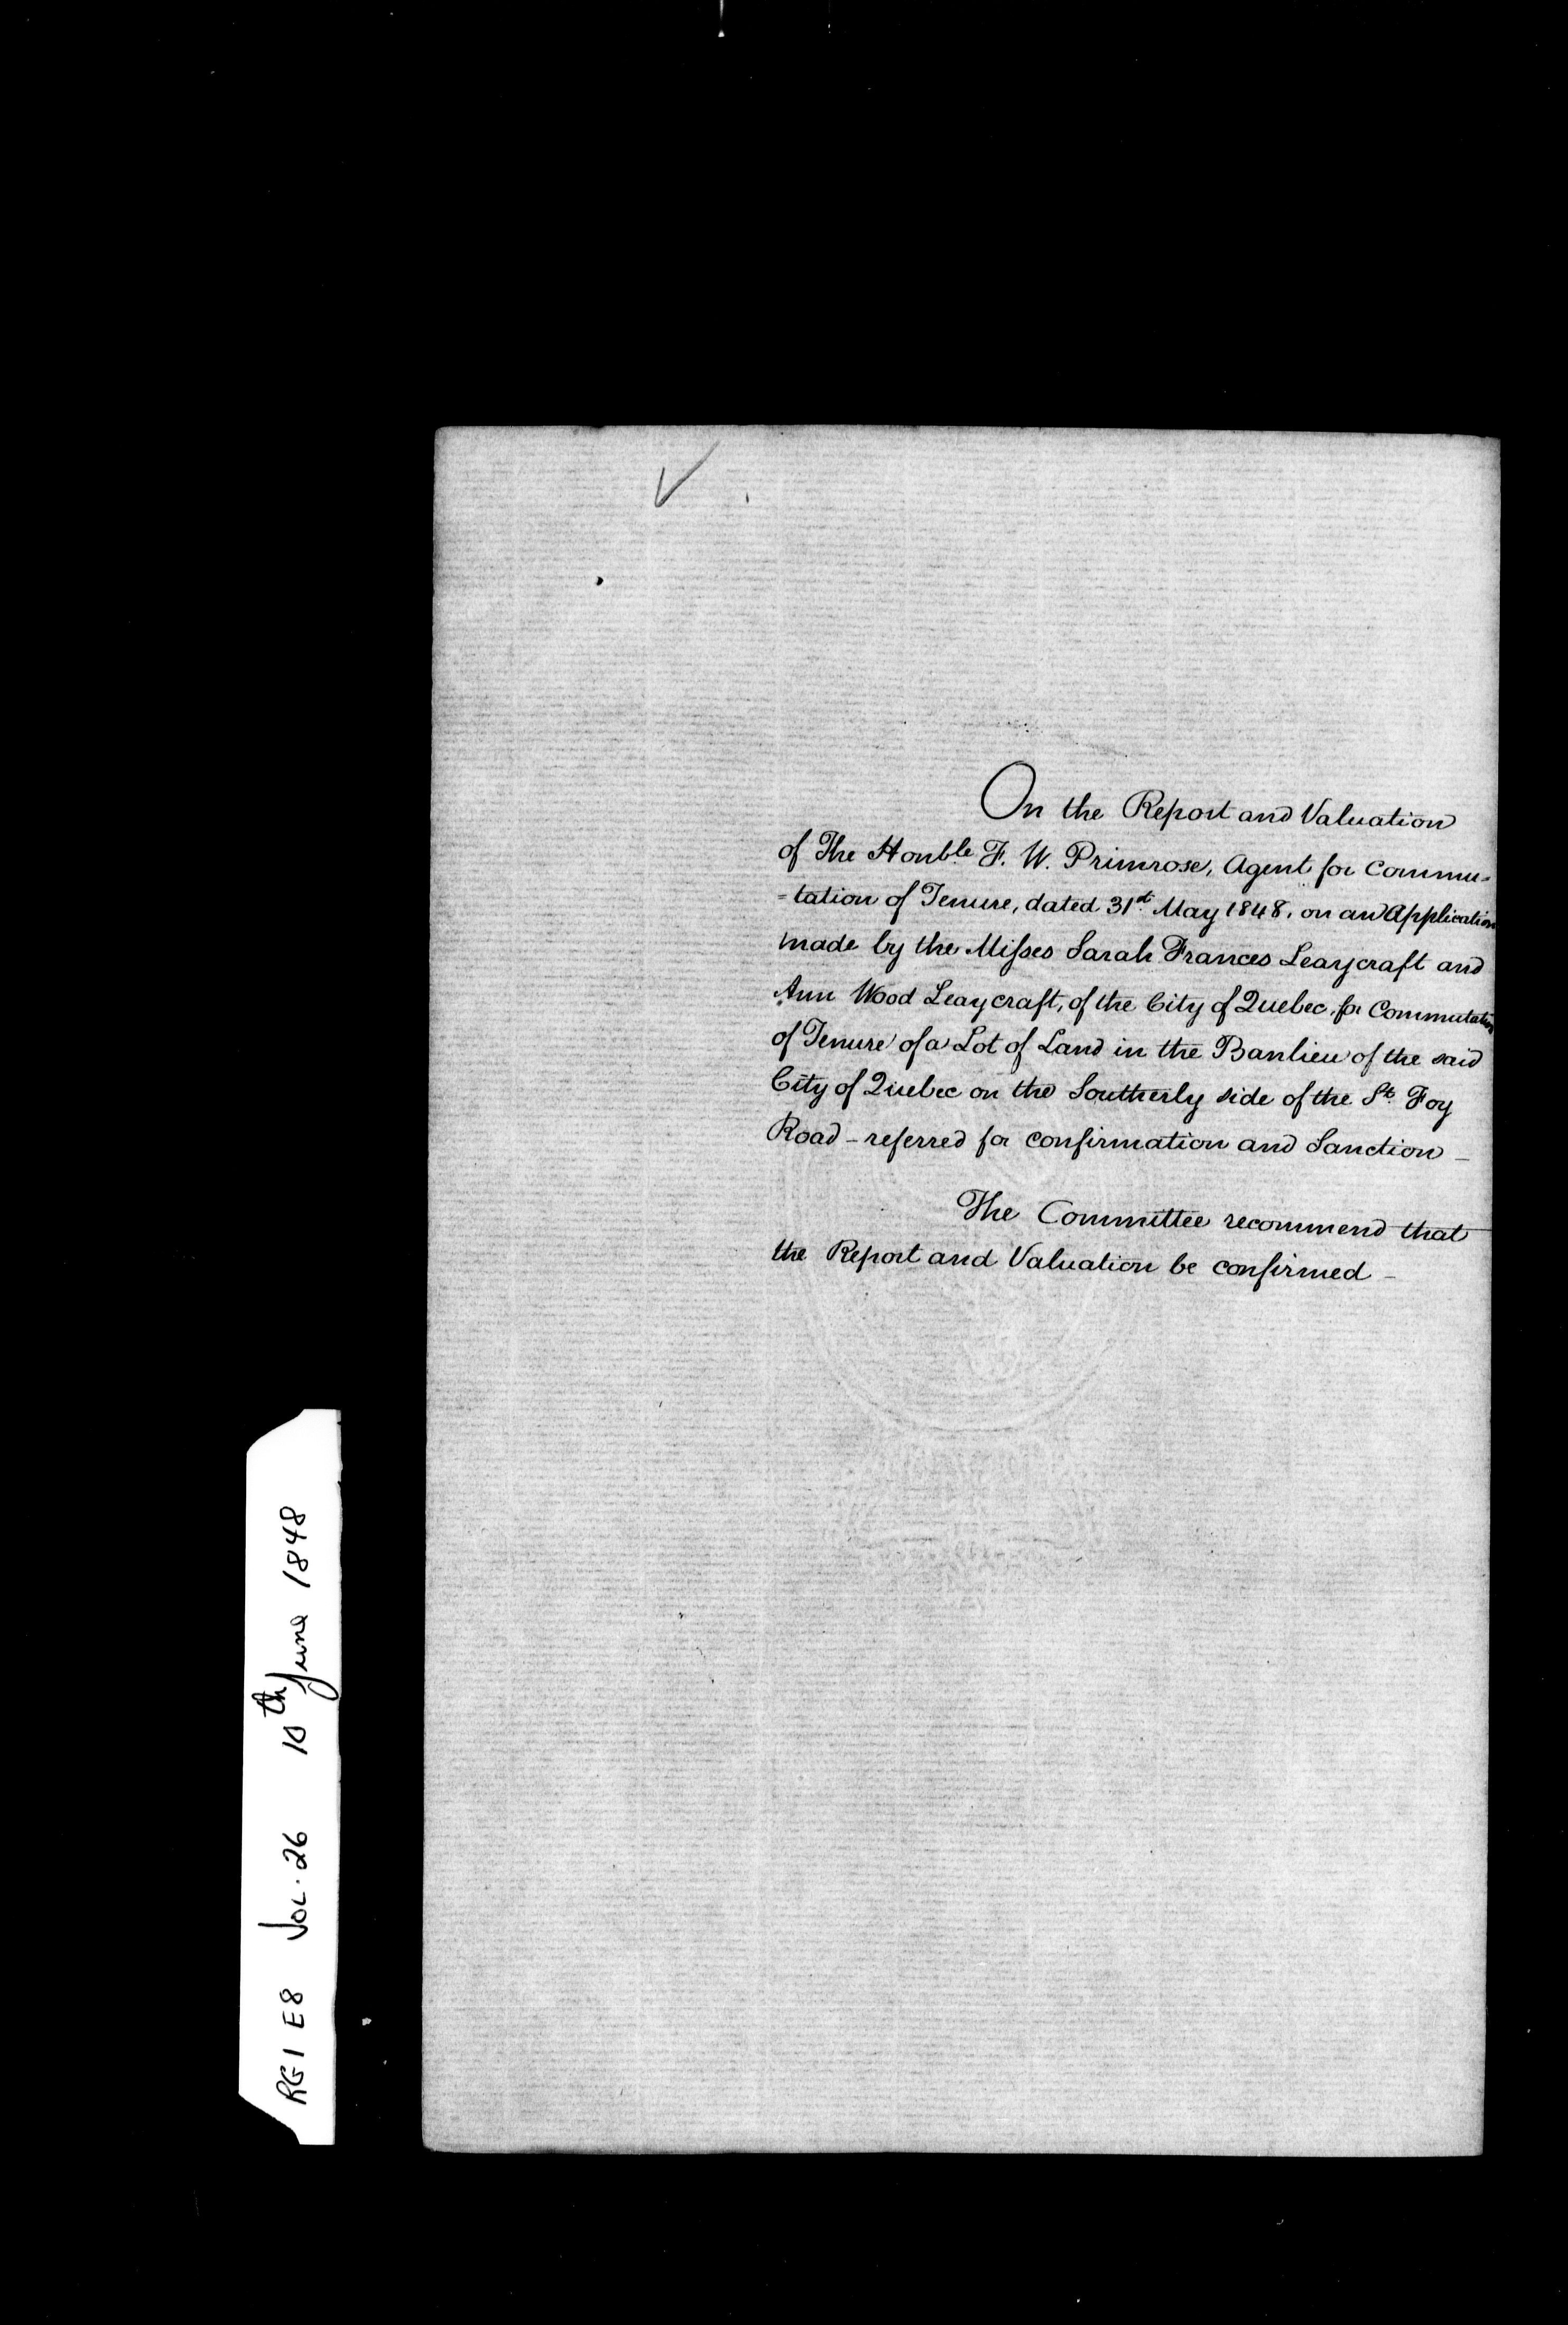 On the Report and Valuation
of The Honble F. W. Primrose, Agent for Commu=
=tation of Tenure, dated 31st May 1848, on an Application
made by the Misses Sarah Frances Leaycraft and
Ann Wood Leaycraft, of the City of Quebec, for Commutation
of Tenure of a Lot of Land in the Banlieu of the said
City of Quebec on the Southerly side of the St. Foy
Road - referred for confirmation and Sanction -
The Committee recommend that
the Report and Valuation be confirmed -
RG1 E8 VOL. 26 10th June 1848